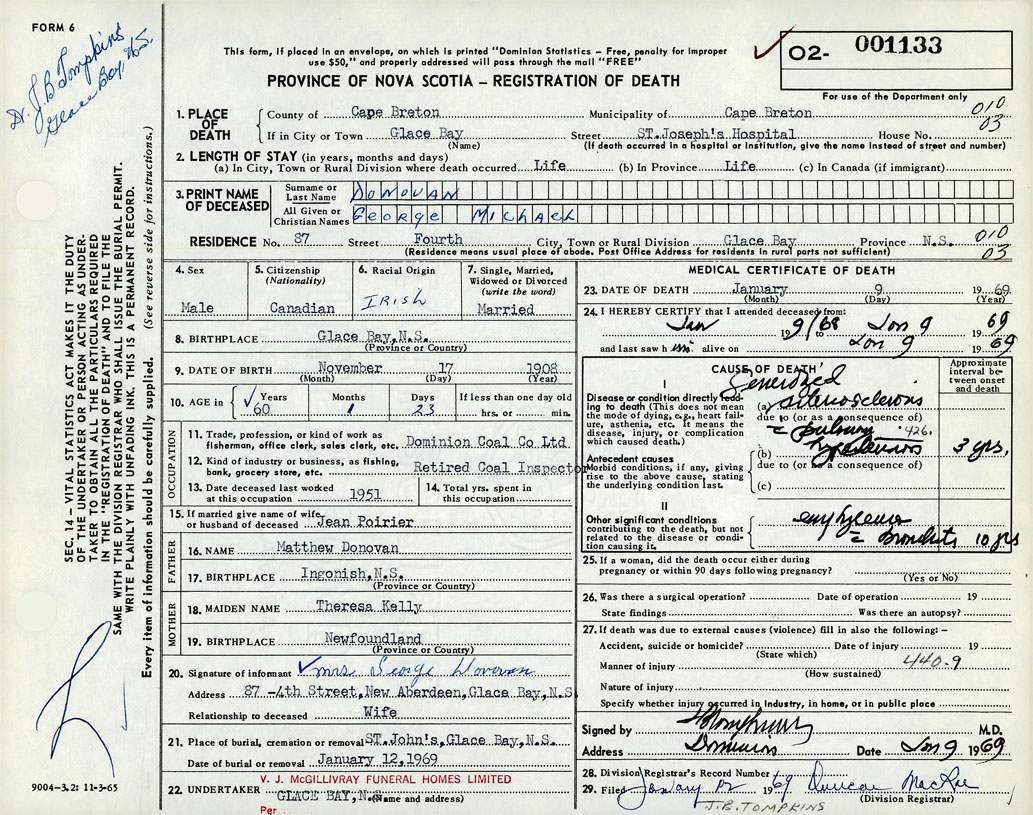 FORM 6
Dr. J.B Tompkins
Glace Bay, N.S.
This form, if placed in an envelope, on which is printed "Dominion Statistics – Free, penalty for improper
use $50," and properly addressed will pass through the mail "FREE"
PROVINCE OF NOVA SCOTIA – REGISTRATION OF DEATH
O2- 001133
For use of the Department only
SEC. 14 – VITAL STATISTICS ACT MAKES IT THE DUTY
OF THE UNDERTAKER OR PERSON ACTING AS UNDER-
TAKER TO OBTAIN ALL THE PARTICULARS REQUIRED
IN THE "REGISTRATION OF DEATH" AND TO FILE THE
SAME WITH THE DIVISION REGISTRAR WHO SHALL ISSUE THE BURIAL PERMIT.
WRITE PLAINLY WITH UNFADING INK. THIS IS A PERMANENT RECORD.
Every item of information should be carefully supplied. (See reverse side for instructions.)
1. PLACE OF DEATH
County of Cape Breton Municipality of Cape Breton 010
If in City or Town Glace Bay Street ST.Joseph's Hospital House No. 03
(Name) (If death occurred in a hospital or institution, give the name instead of street and number)
2. LENGTH OF STAY (in years, months and days)
(a) In City, Town or Rural Division where death occurred Life (b) In Province Life (c) In Canada (if immigrant)
3. PRINT NAME OF DECEASED
Surname or Last Name DONOVAN
All Given or Christian Names GEORGE MICHAEL
RESIDENCE No. 87 Street Fourth City, Town or Rural Division Glace Bay Province N.S. 010
(Residence means usual place of abode. Post Office Address for residents in rural parts not sufficient) 03
4. Sex
Male
5. Citizenship
(Nationality)
Canadian
6. Racial Origin
IRISH
7. Single, Married,
Widowed or Divorced
(write the word)
Married
8. BIRTHPLACE Glace Bay,N.S.
(Province or Country)
9. DATE OF BIRTH November 17 1908
(Month) (Day) (Year)
10. AGE in Years Months Days If less than one day old
60 1 23 hrs. or min.
OCCUPATION
11. Trade, profession, or kind of work as
fisherman, office clerk, sales clerk, etc. Dominion Coal Co Ltd
12. Kind of industry or business, as fishing,
bank, grocery store, etc. Retired Coal Inspector
13. Date deceased last worked
at this occupation 1951
14. Total yrs. spent in
this occupation
15. If married give name of wife
or husband of deceased Jean Poirier
FATHER
16. NAME Matthew Donovan
17. BIRTHPLACE Ingonish,N.S.
(Province or Country)
MOTHER
18. MAIDEN NAME Theresa Kelly
19. BIRTHPLACE Newfoundland
(Province or Country)
20. Signature of informant Mrs George Donovan
Address 87 -4th Street,New Aberdeen,Glace Bay,N.S
Relationship to deceased Wife
21. Place of burial, cremation or removal ST.John's,Glace Bay,N.S.
Date of burial or removal January 12,1969
V. J. McGILLIVRAY FUNERAL HOMES LIMITED
22. UNDERTAKER GLACE BAY,N.S.
(Name and address)
Per
9004–3.2: 11-3-65
MEDICAL CERTIFICATE OF DEATH
23. DATE OF DEATH January 9 1969
(Month) (Day) (Year)
24. I HEREBY CERTIFY that I attended deceased from:
Jan 9 1968 to Jan 9 1969
and last saw him alive on Jan 9 1969
CAUSE OF DEATH
Approximate interval between onset and death
I
Disease or condition directly leading to death (This does not mean the mode of dying, e.g., heart failure, asthenia, etc. It means the disease, injury, or complication which caused death.)
Generalized
(a) arteriosclerosis
due to (or as a consequence of)
pulmonary 426.
Antecedent causes
Morbid conditions, if any, giving rise to the above cause, stating the underlying condition last.
(b) hypertension 3 yrs.
due to (or as a consequence of)
(c)
II
Other significant conditions
contributing to the death, but not related to the disease or condition causing it.
emphysema
Bronchitis 10 yrs
25. If a woman, did the death occur either during
pregnancy or within 90 days following pregnancy?
(Yes or No)
26. Was there a surgical operation? Date of operation 19
State findings Was there an autopsy?
27. If death was due to external causes (violence) fill in also the following: –
Accident, suicide or homicide? Date of injury 19
(State which)
Manner of injury 440.9
(How sustained)
Nature of injury
Specify whether injury occurred in industry, in home, or in public place
Signed by JB Tompkins M.D.
Address Dominion Date Jan 9 1969
28. Division Registrar's Record Number
29. Filed January 12 1969 Duncan MacRae
(Division Registrar)
J.B. TOMPKINS